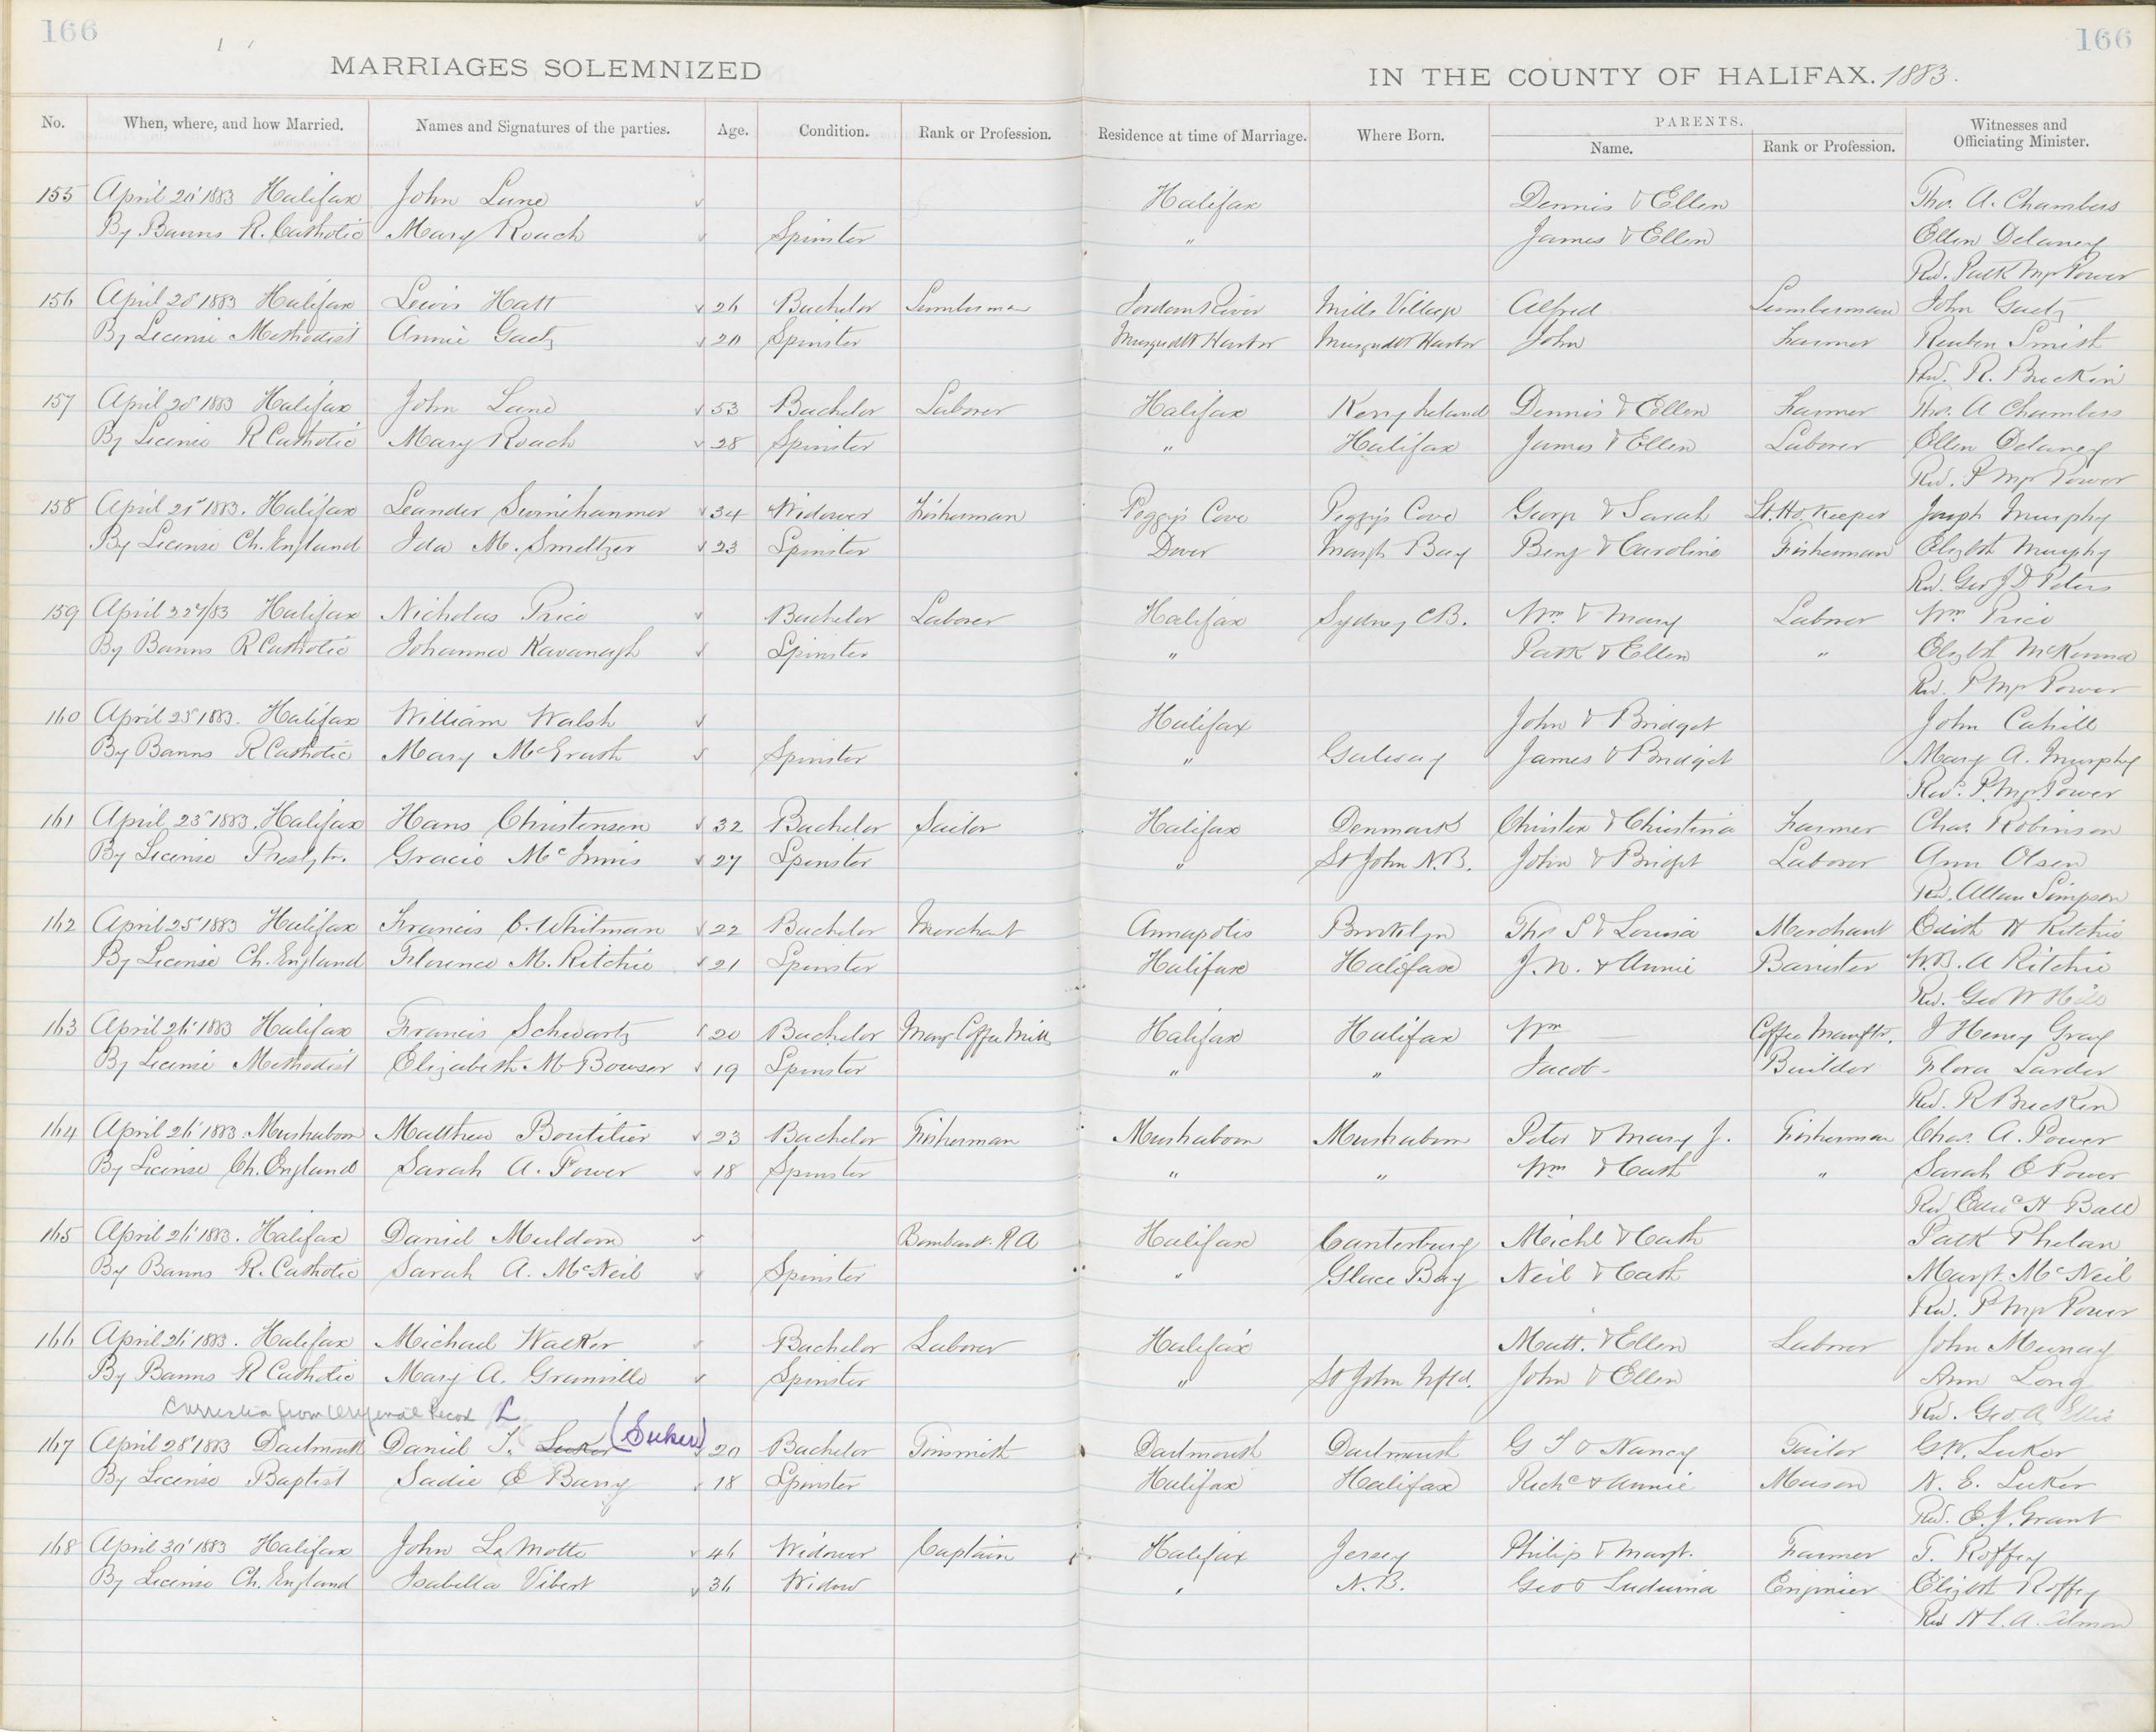 166
166
MARRIAGES SOLEMNIZED
IN THE COUNTY OF HALIFAX. 1883.
No. When, where, and how Married. Names and Signatures of the parties. Age. Condition. Rank or Profession. Residence at time of Marriage. Where Born. PARENTS. Name. Rank or Profession. Witnesses and Officiating Minister.
155 April 20 1883 Halifax John Lane Halifax Dennis & Ellen Thos. A. Chambers
By Banns R. Catholic Mary Roach Spinster " James & Ellen Ellen Delaney
Rd. Patk Mgr Power
156 April 20 1883 Halifax Lewis Hatt 26 Bachelor Lumberman Jordans River Mills Village Alfred Lumberman John Gaetz
By License Methodist Annie Gaetz 20 Spinster Musqudt Harbor Musqudt Harbor John Farmer Reuben Smith
Rd. R. Brecken
157 April 20 1883 Halifax John Lane 53 Bachelor Laborer Halifax Kerry Ireland Dennis & Ellen Farmer Thos. A Chambers
By License R Catholic Mary Roach 28 Spinster " Halifax James & Ellen Laborer Ellen Delaney
Rd. P Mgr Power
158 April 21 1883. Halifax Leander 34 Widower Fisherman Peggy's Cove Peggy's Cove George & Sarah Lt. Ho. Keeper Joseph Murphy
By License Ch. England Ida M. Smeltzer 23 Spinster Dover Marght Bay Benj & Caroline Fisherman Elizbth Murphy
Rd. Geo J D Peters
159 April 22/83 Halifax Nicholas Price Bachelor Laborer Halifax Sydney C.B. Wm & Mary Laborer Wm Price
By Banns R Catholic Johanna Kavanagh Spinster " Patk & Ellen " Elizbth McKenna
Rd. P Mgr Power
160 April 23 1883. Halifax William Walsh Halifax John & Bridget John Cahill
By Banns R Catholic Mary McGrath Spinster " Galway James & Bridget Mary A. Murphy
Rd. P. Mgr. Power
161 April 23 1883. Halifax Hans Christensen 32 Bachelor Sailor Halifax Denmark Christen & Christina Farmer Chas. Robinson
By License Presbytr. Gracie McInnis 27 Spinster " St John N.B. John & Bridgt Laborer Ann Olsen
Rd. Allan Simpson
162 April 25 1883 Halifax Francis C. Whitman 22 Bachelor Merchant Annapolis Brooklyn Thos S & Louisa Merchant Edith H Ritchie
By License Ch. England Florence M. Ritchie 21 Spinster Halifax Halifax J. N. & Annie Barrister W.B. A Ritchie
Rd. Geo W Hill
163 April 26 1883 Halifax Francis Schwartz 20 Bachelor Mang Coffee Mills Halifax Halifax Wm Coffee Manftr. J Henry Gray
By License Methodist Elizabeth M Bowser 19 Spinster " " Jacob Builder Flora Larder
Rd. R Brecken
164 April 26 1883. Mushaboom Matthew Boutilier 23 Bachelor Fisherman Mushaboom Mushaboom Peter & Mary J. Fisherman Chas. A. Power
By License Ch. England Sarah A. Power 18 Spinster " " Wm & Cath " Sarah E Power
Rd Edwd H Ball
165 April 26 1883. Halifax Daniel Muldoon Bombardr. R A Halifax Canterbury Michl & Cath Patk Phelan
By Banns R. Catholic Sarah A. McNeil Spinster " Glace Bay Neil & Cath Margt. McNeil
Rd. P Mgr Power
166 April 26 1883. Halifax Michael Walker Bachelor Laborer Halifax Matt. & Ellen Laborer John Murray
By Banns R Catholic Mary A. Granville Spinster " St John Nfld. John & Ellen Ann Long
Rd. Geo. A Ellis
Correction from Original Record
167 April 28 1883 Dartmouth Daniel T. Luker (Suker) 20 Bachelor Tinsmith Dartmouth Dartmouth G T & Nancy Tailor G.W. Luker
By License Baptist Sadie E Barry 18 Spinster Halifax Halifax Richd & Annie Mason N. E. Luker
Rd. E. J. Grant
168 April 30 1883 Halifax John La Motte 46 Widower Captain Halifax Jersey Philip & Margt. Farmer T. Roffey
By License Ch. England Isabella Vibert 36 Widow " N. B. Geo & Luduvina Engineer Elizbth Roffey
Rd H L. A. Almon